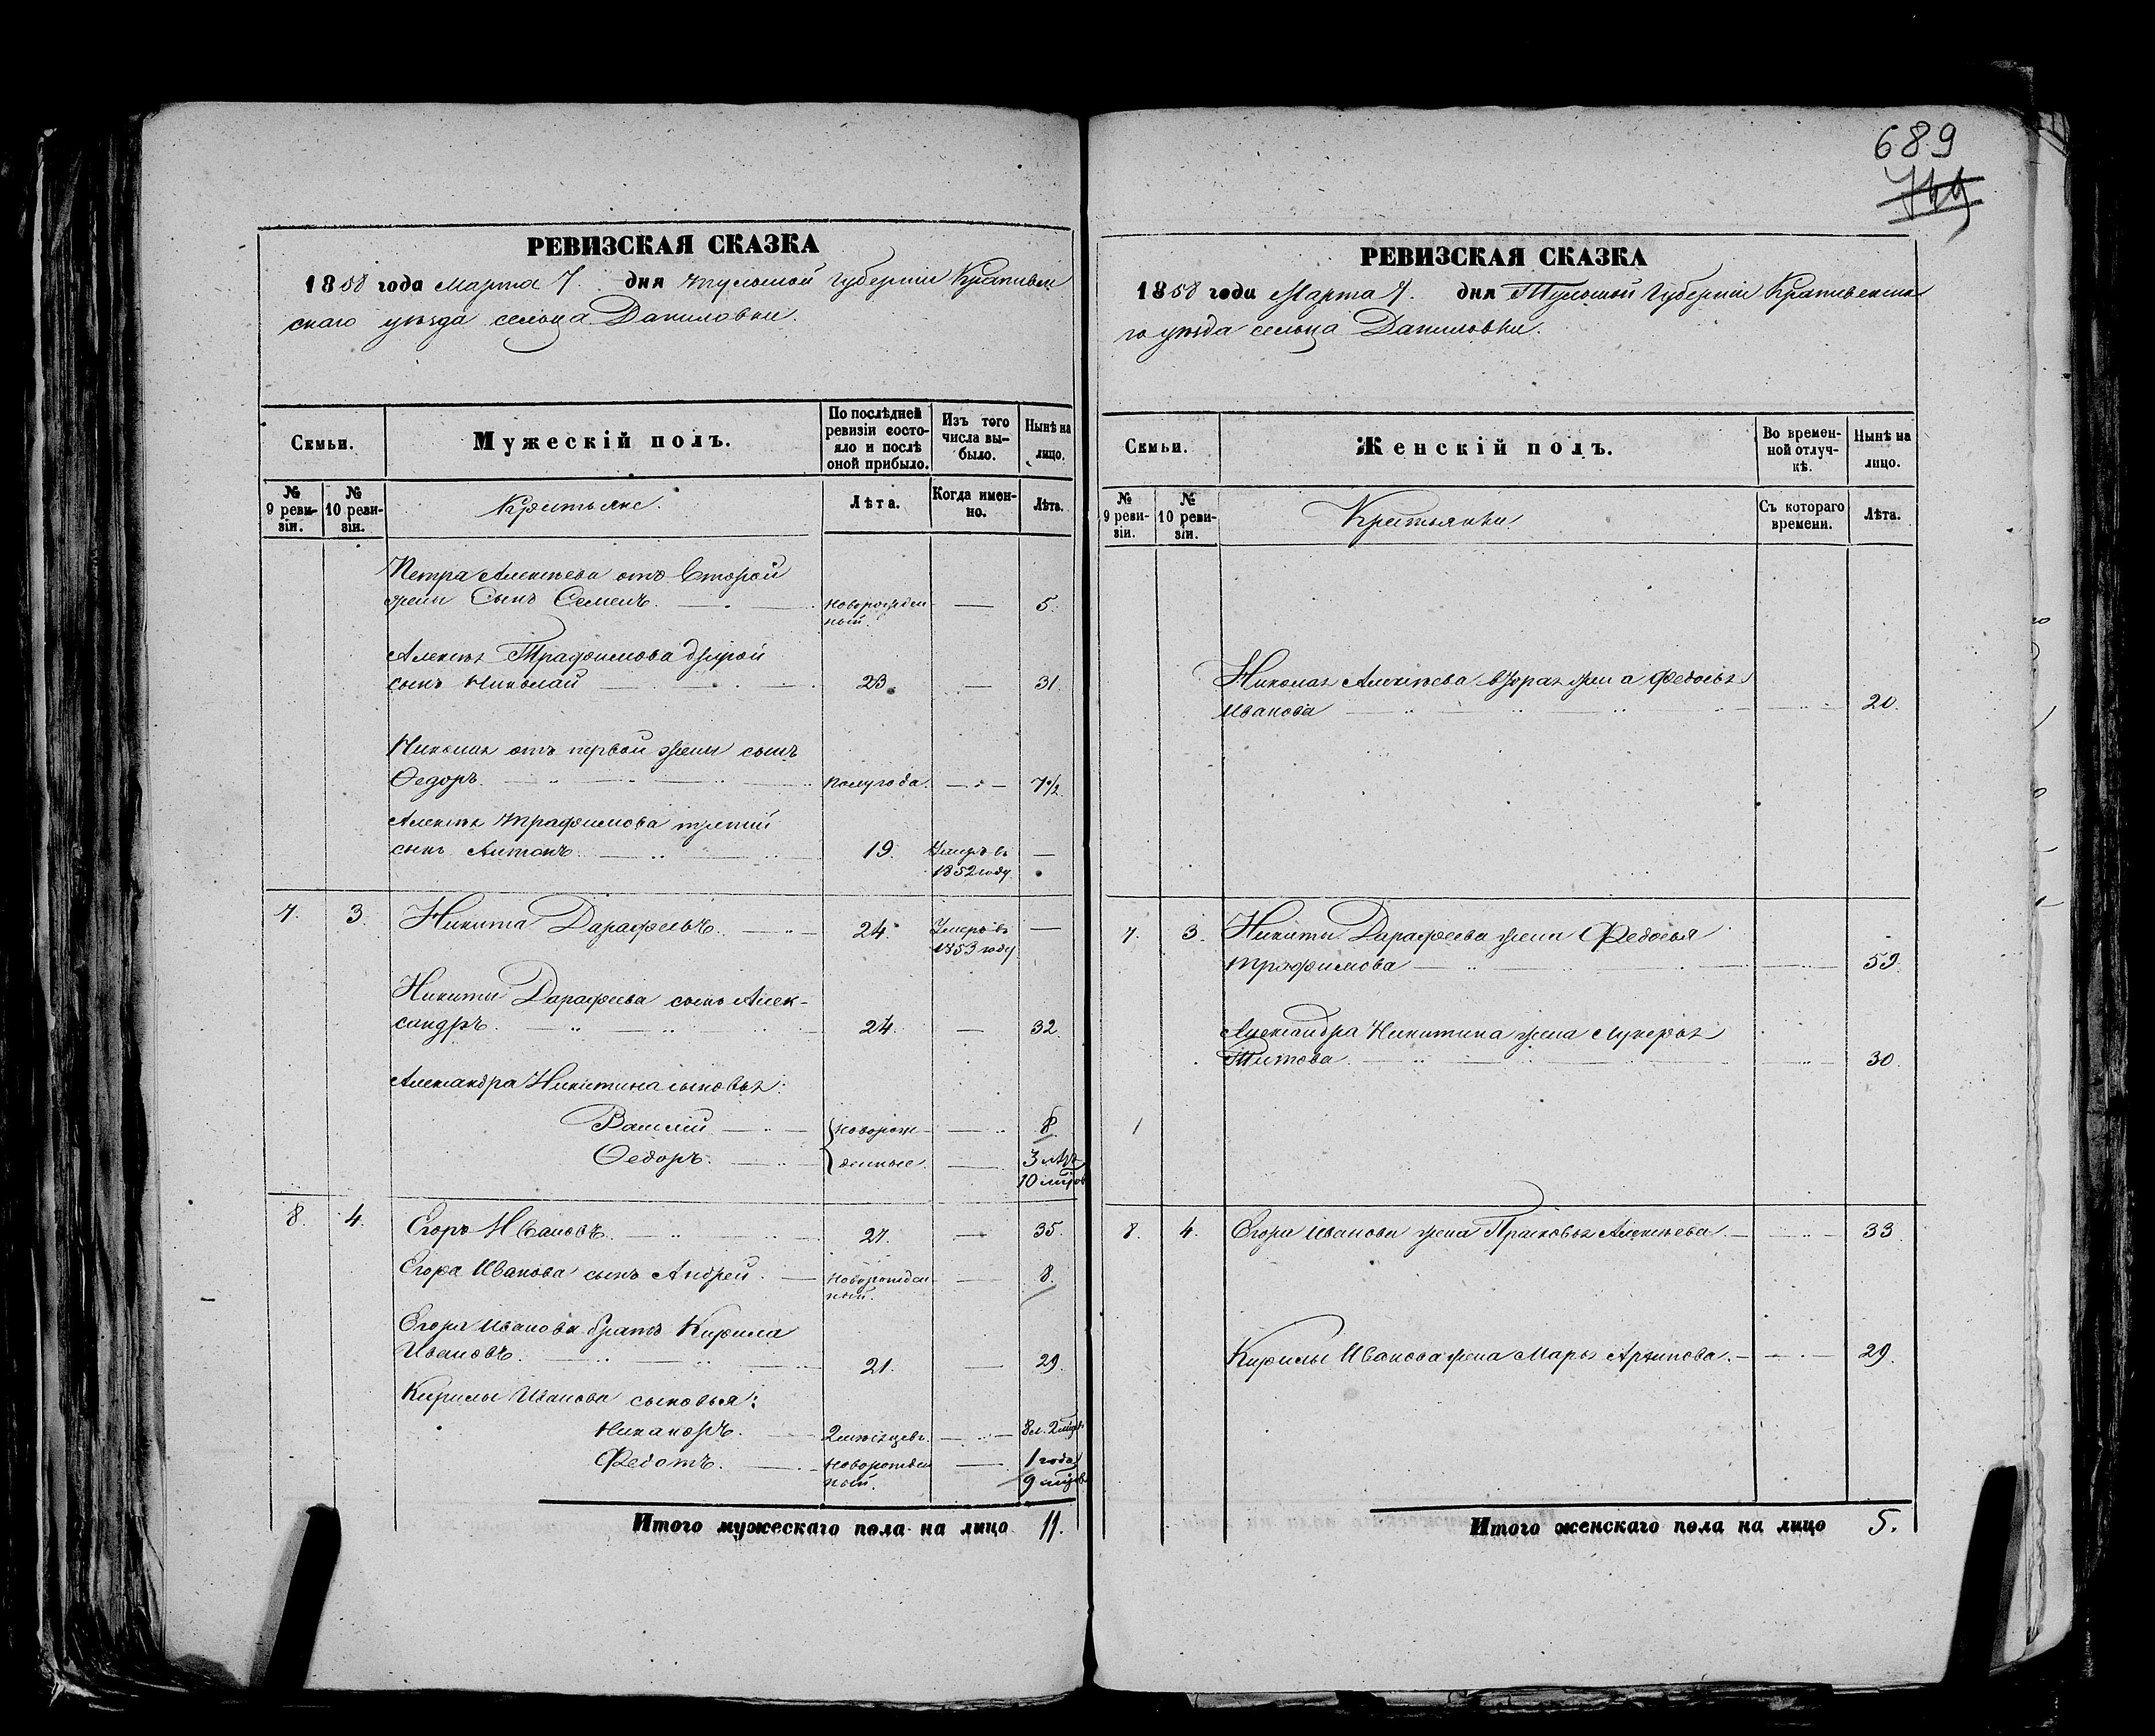 689
749
РЕВИЗСКАЯ СКАЗКА
1858 года Марта 7. дня Тульской Губерніи Крапивен
скаго уѣзда сельца Даниловки.
Семьи.
Мужескій полъ.
По послѣдней ревизіи состо-
яло и послѣ оной прибыло.
Изъ того числа вы-
было.
Нынѣ на лицо.
№ 9 реви-
зіи.
№ 10 реви-
зіи.
Крестьяне.
Лѣта.
Когда имен-
но.
Лѣта.
Петра Алексѣева отъ второй
жены Сынъ Семенъ. новорожден 5.
ный.
Алексѣя Трафимова другой
сынъ Николай 23. 31.
Николая отъ первой жены сынъ
Ѳедоръ. полугода. 7 1/2
Алексѣя Трафимова третій
сынъ Антонъ. 19. Умеръ въ
1852 году.
7. 3. Никита Дарафеевъ. 24. Умеръ въ
1853 году
Никиты Дарафеева сынъ Алек-
сандръ. 24. 32.
Александра Никитина сыновья:
Василій новорож- 8.
Ѳедоръ. денные. 3 лѣтъ
10 міцов
8. 4. Егоръ Ивановъ. 27. 35.
Егора Иванова сынъ Андрей. новорожден 8.
ный.
Егора Иванова братъ Кирила
Ивановъ. 21. 29.
Кирилы Иванова сыновья:
Никаноръ. 2 мѣсяцевъ. 8 л. 2 міц.
Федотъ. новорожден 1 года
ный. 9 міцов
Итого мужескаго пола на лицо 11.
РЕВИЗСКАЯ СКАЗКА
1858 года Марта 7. дня Тульской Губерніи Крапивенска
го уѣзда сельца Даниловки.
Семьи.
Женскій полъ.
Во времен-
ной отлуч-
кѣ.
Нынѣ на лицо.
№ 9 реви-
зіи.
№ 10 реви-
зіи.
Крестьянки
Съ котораго времени.
Лѣта.
Николая Алексѣева вторая жена Федосья
Иванова 20.
7. 3. Никиты Дарафеева жена Федосья
Трафимова 59.
Александра Никитина жена Лукерья
Титова. 30.
8. 4. Егора Иванова жена Прасковья Алексѣева. 33
Кирилы Иванова жена Марья Архипова. 29.
Итого женскаго пола на лицо 5.